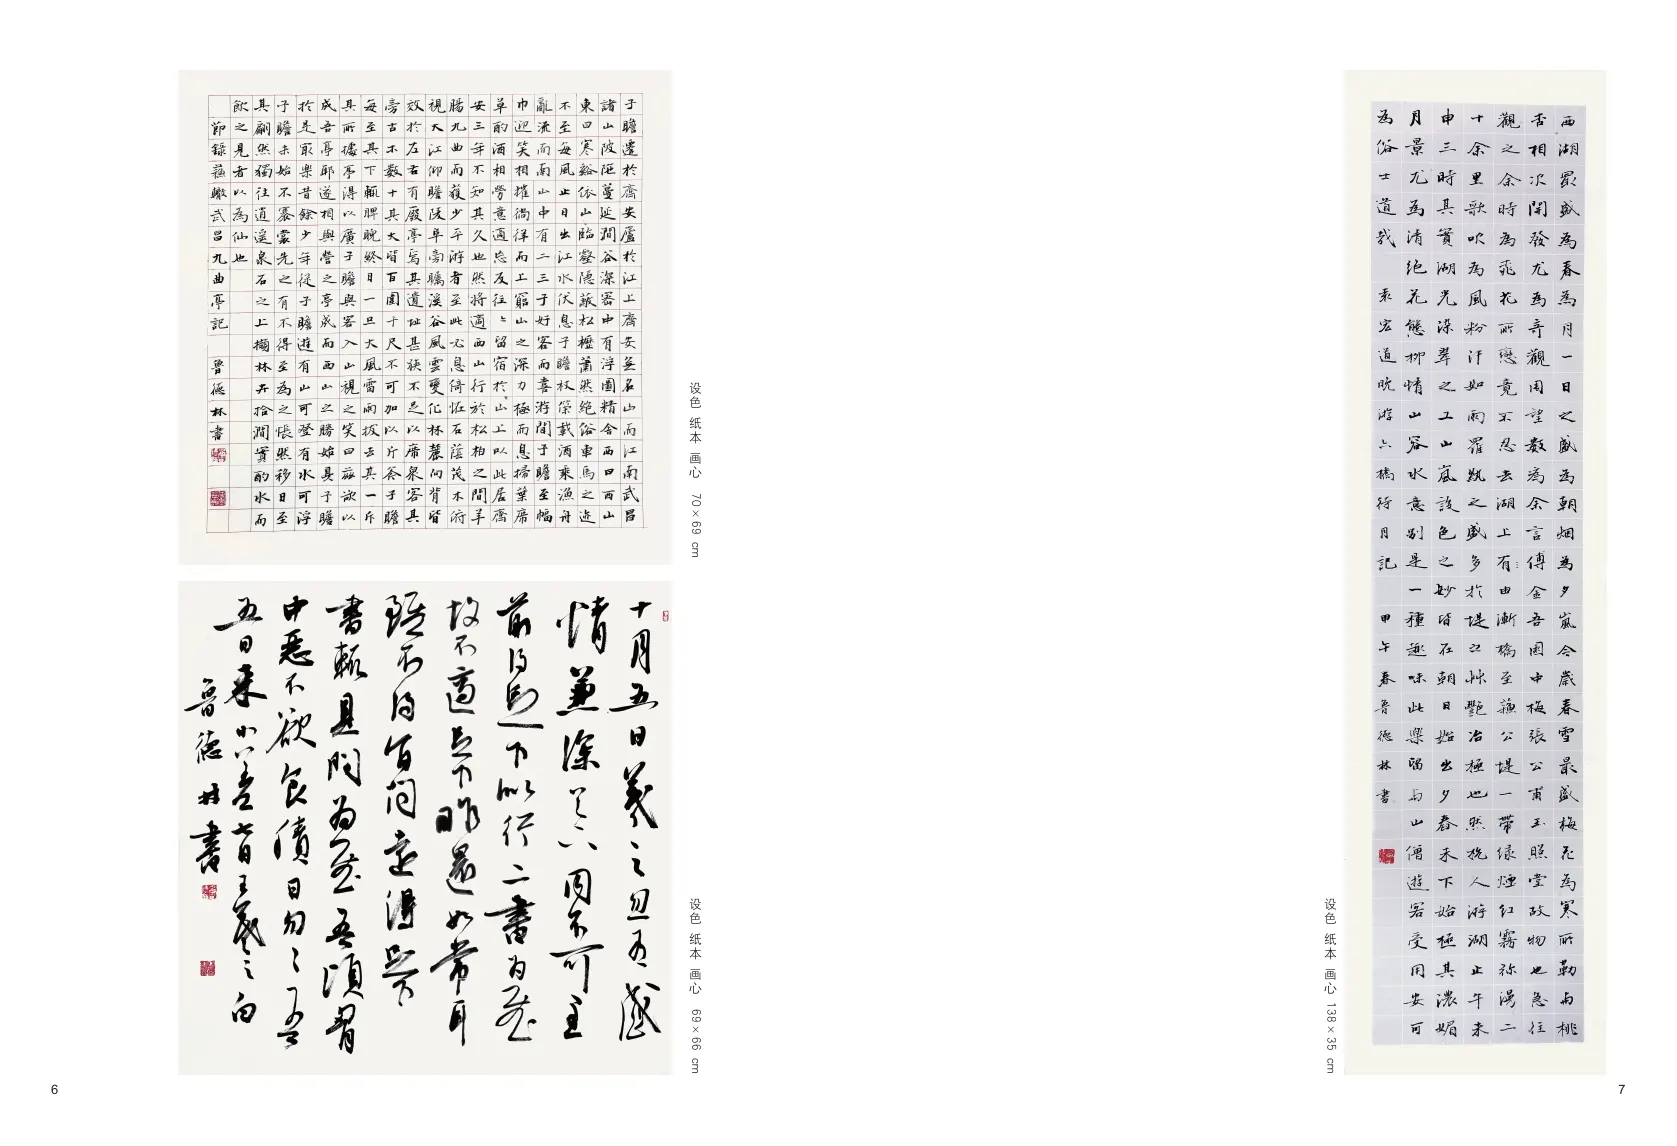 子瞻遷於齊安廬於江上齊安無名山而江南武昌
諸山陂陁蔓延澗谷深密中有浮圖精舍西曰西山
東曰寒谿依山臨壑隱蔽松櫪蕭然絕俗車馬之迹
不至每風止日出江水伏息子瞻杖策載酒乘漁舟
亂流而南山中有二三子好客而喜游聞子瞻至幅
巾迎笑相攜徜徉而上窮山之深力極而息掃葉席
草酌酒相勞意適忘反往〻留宿於山上以此居齊
安三年不知其久也然將適西山行於松柏之間羊
腸九曲而獲少平游者至此必息倚怪石蔭茂木俯
視大江仰瞻陵阜旁矚溪谷風雲變化林麓向背皆
效於左右有廢亭焉其遺址甚狹不足以席衆客其
旁古木數十其大皆百圍千尺不可加以斤斧子瞻
每至其下輒睥睨終日一旦大風雷雨拔去其一斥
其所據亭得以廣子瞻與客入山視之笑曰茲欲以
成吾亭耶遂相與營之亭成而西山之勝始具子瞻
於是最樂昔餘少年從子瞻遊有山可登有水可浮
子瞻未始不褰裳先之有不得至為之悵然移日至
其翩然獨往逍遙泉石之上擷林卉拾澗實酌水而
飲之見者以為仙也
節錄蘇轍武昌九曲亭記 魯德林書
设色 纸本 画心 70×69 cm
十月五日羲之忽
情兼深
前得足下 書為慰
故不適足下昨還如常耳
雖不得
書輒具問為慰吾頃胃
中惡不欲食積日勿〻吾
五日來小差 王羲之白
魯德林書
设色 纸本 画心 69×66 cm
6
西湖最盛為春為月一日之盛為朝烟為夕嵐今歲春雪最盛梅花為寒所勒与桃
杏相次開發尤為奇觀周望數為余言傅金吾園中梅張公甫玉照堂故物也急往
觀之余時為飛花所戀竟不忍去湖上有由漸橋至蘇公堤一帶綠煙紅霧弥漫二
十余里歌吹為風粉汗如雨羅紈之盛多於堤之艸艷冶極也然杭人游湖止午未
申三時其實湖光染翠之工山嵐設色之妙皆在朝日始出夕舂未下始極其濃媚
月景尤為清絕花態柳情山容水意別是一種趣味此樂留与山僧遊客受用安可
為俗士道哉 袁宏道晚游六橋待月記 甲午春魯德林書
设色 纸本 画心 138×35 cm
7